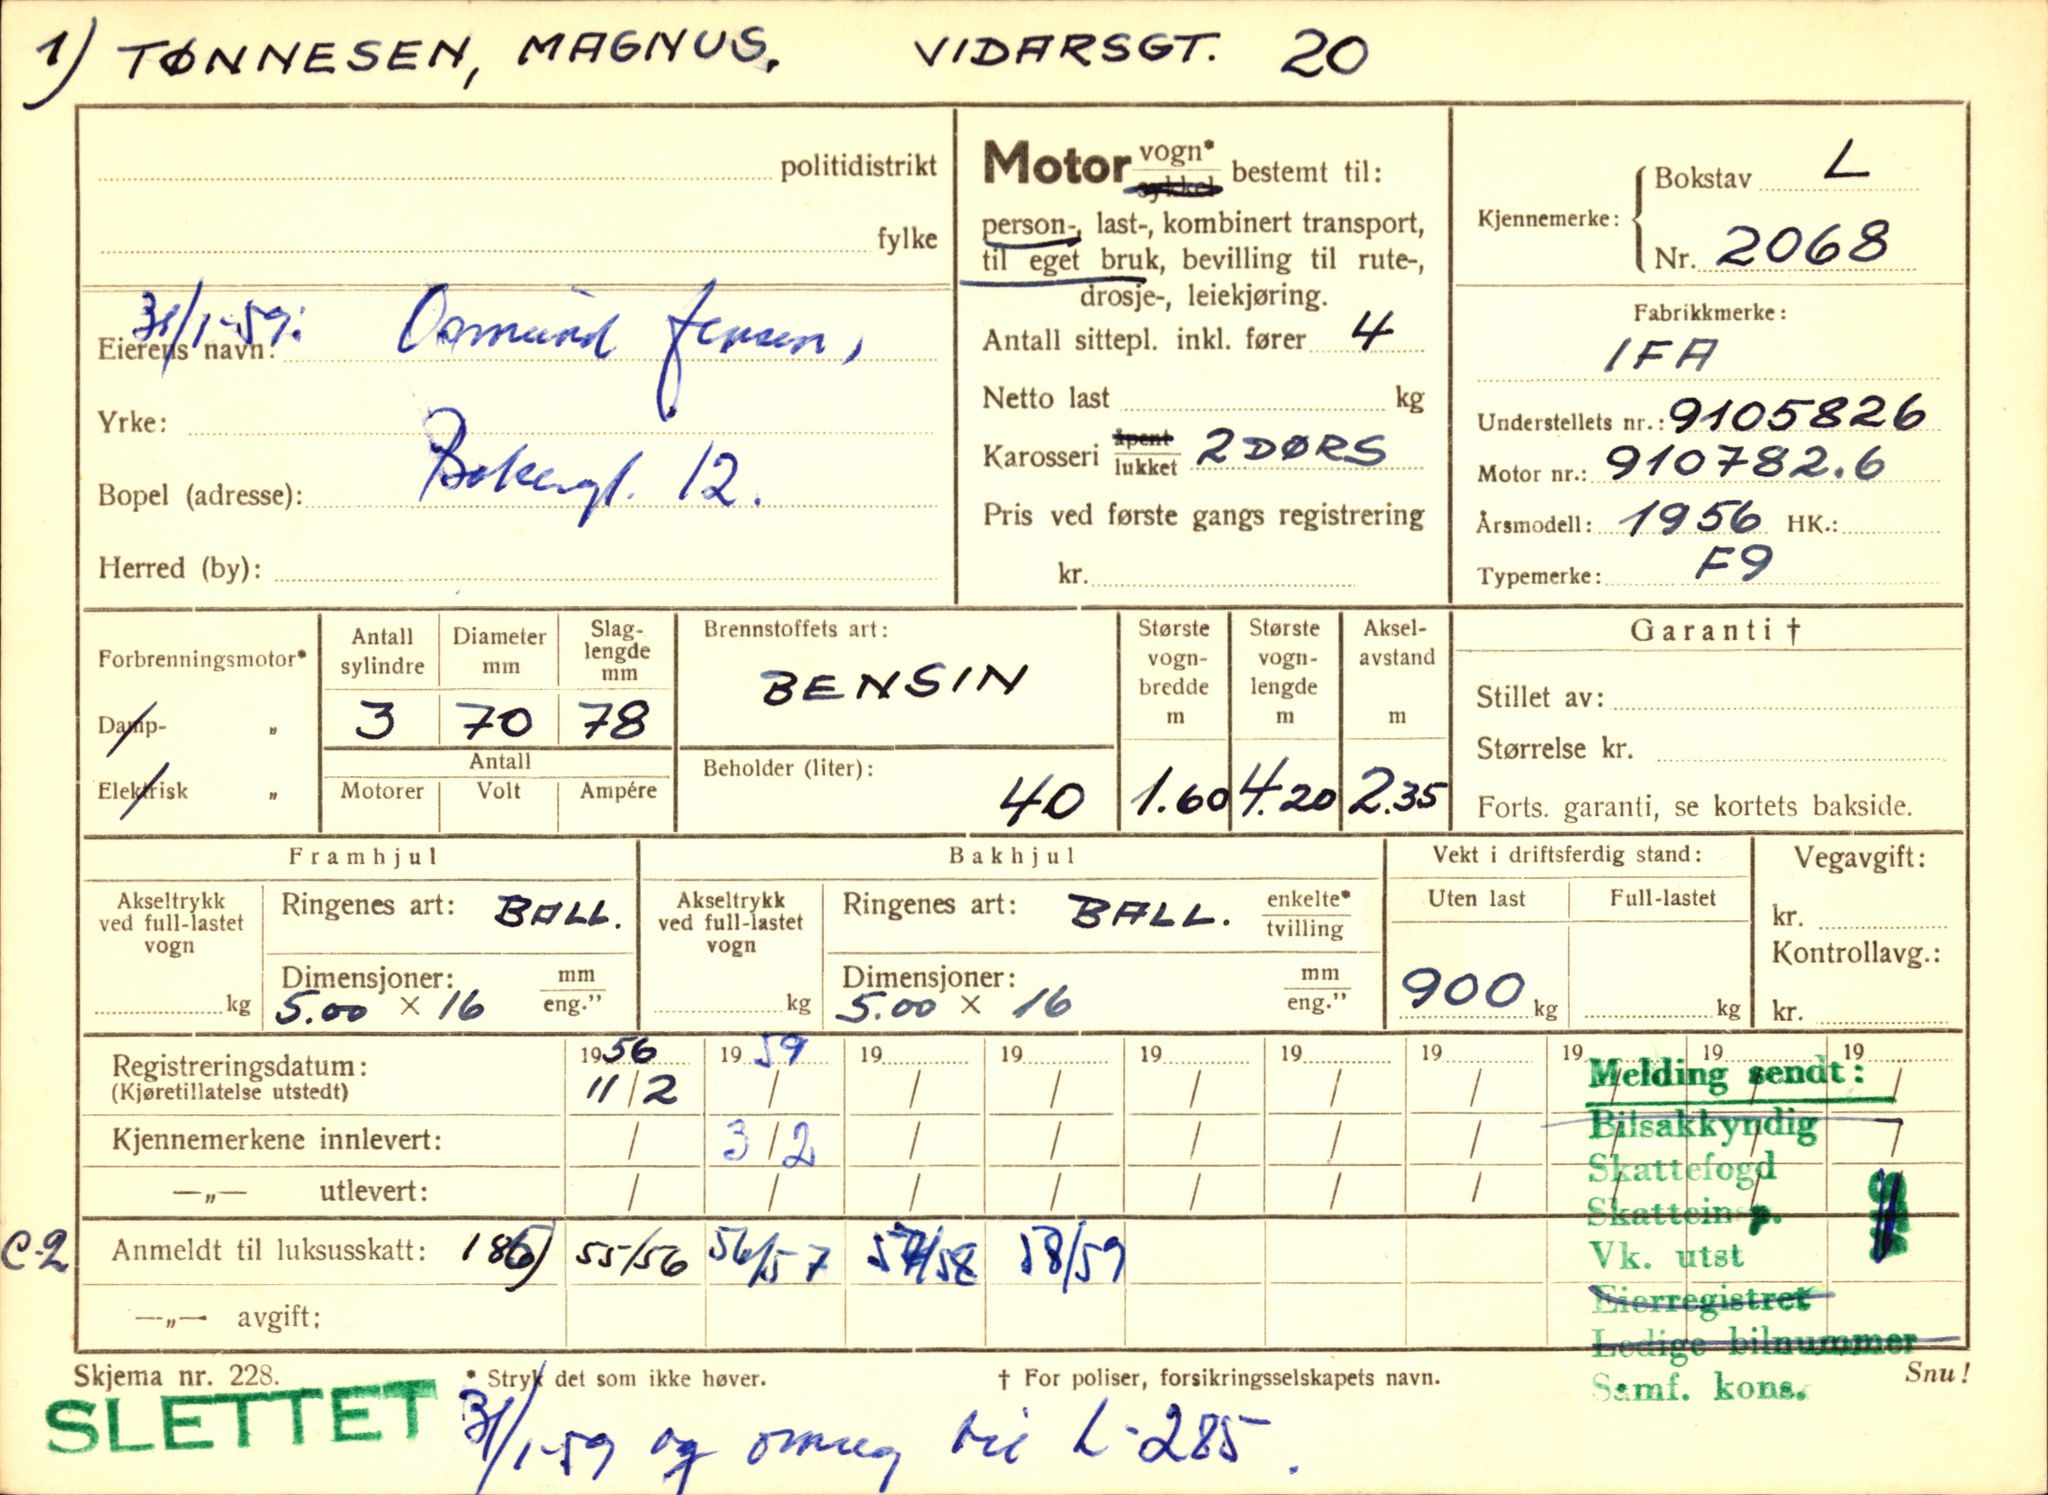 1) TØNNESEN, MAGNUS. VIDARSGT. 20
politidistrikt
fylke
31/1-59: Osmund Jensen,
Eierens navn:
Yrke:
Bakergt. 12.
Bopel (adresse):
Herred (by):
Motor vogn* sykkel bestemt til:
person-, last-, kombinert transport,
til eget bruk, bevilling til rute-,
drosje-, leiekjøring.
Antall sittepl. inkl. fører 4
Netto last kg
Karosseri åpent lukket 2 DØRS
Pris ved første gangs registrering
kr.
Kjennemerke: Bokstav L
Nr. 2068
Fabrikkmerke:
IFA
Understellets nr.: 9105826
Motor nr.: 910782.6
Årsmodell: 1956 HK.:
Typemerke: F9
Forbrenningsmotor*
Damp- „
Elektrisk „
Antall sylindre 3
Diameter mm 70
Slag-
lengde
mm
78
Antall
Motorer Volt Ampére
Brennstoffets art:
BENSIN
Beholder (liter):
40
Største
vogn-
bredde
m
1.60
Største
vogn-
lengde
m
4.20
Aksel-
avstand
m
2.35
Garanti †
Stillet av:
Størrelse kr.
Forts. garanti, se kortets bakside.
Framhjul
Akseltrykk
ved full-lastet
vogn
kg
Ringenes art: BALL.
Dimensjoner: mm eng.”
5.00 × 16
Bakhjul
Akseltrykk
ved full-lastet
vogn
kg
Ringenes art: BALL. enkelte* tvilling
Dimensjoner: mm eng.”
5.00 × 16
Vekt i driftsferdig stand:
Uten last Full-lastet
900 kg kg
Vegavgift:
kr.
Kontrollavg.:
kr.
Registreringsdatum: 1956 1959 19 19 19 19 19 19 19 19
(Kjøretillatelse utstedt) 11/2 / / / / / / / / /
Kjennemerkene innlevert: / 3/2 / / / / / / / /
—„— utlevert: / / / / / / / /
C-2 Anmeldt til luksusskatt: 55/56 56/57 57/58 58/59
—„— avgift:
Melding sendt:
Bilsakkyndig
Skattefogd
Skatteinsp.
Vk. utst
Eierregistret
Ledige bilnummer
Samf. kons.
Skjema nr. 228. * Stryk det som ikke høver. † For poliser, forsikringsselskapets navn. Snu!
SLETTET 31/1-59 og omreg til L-285.